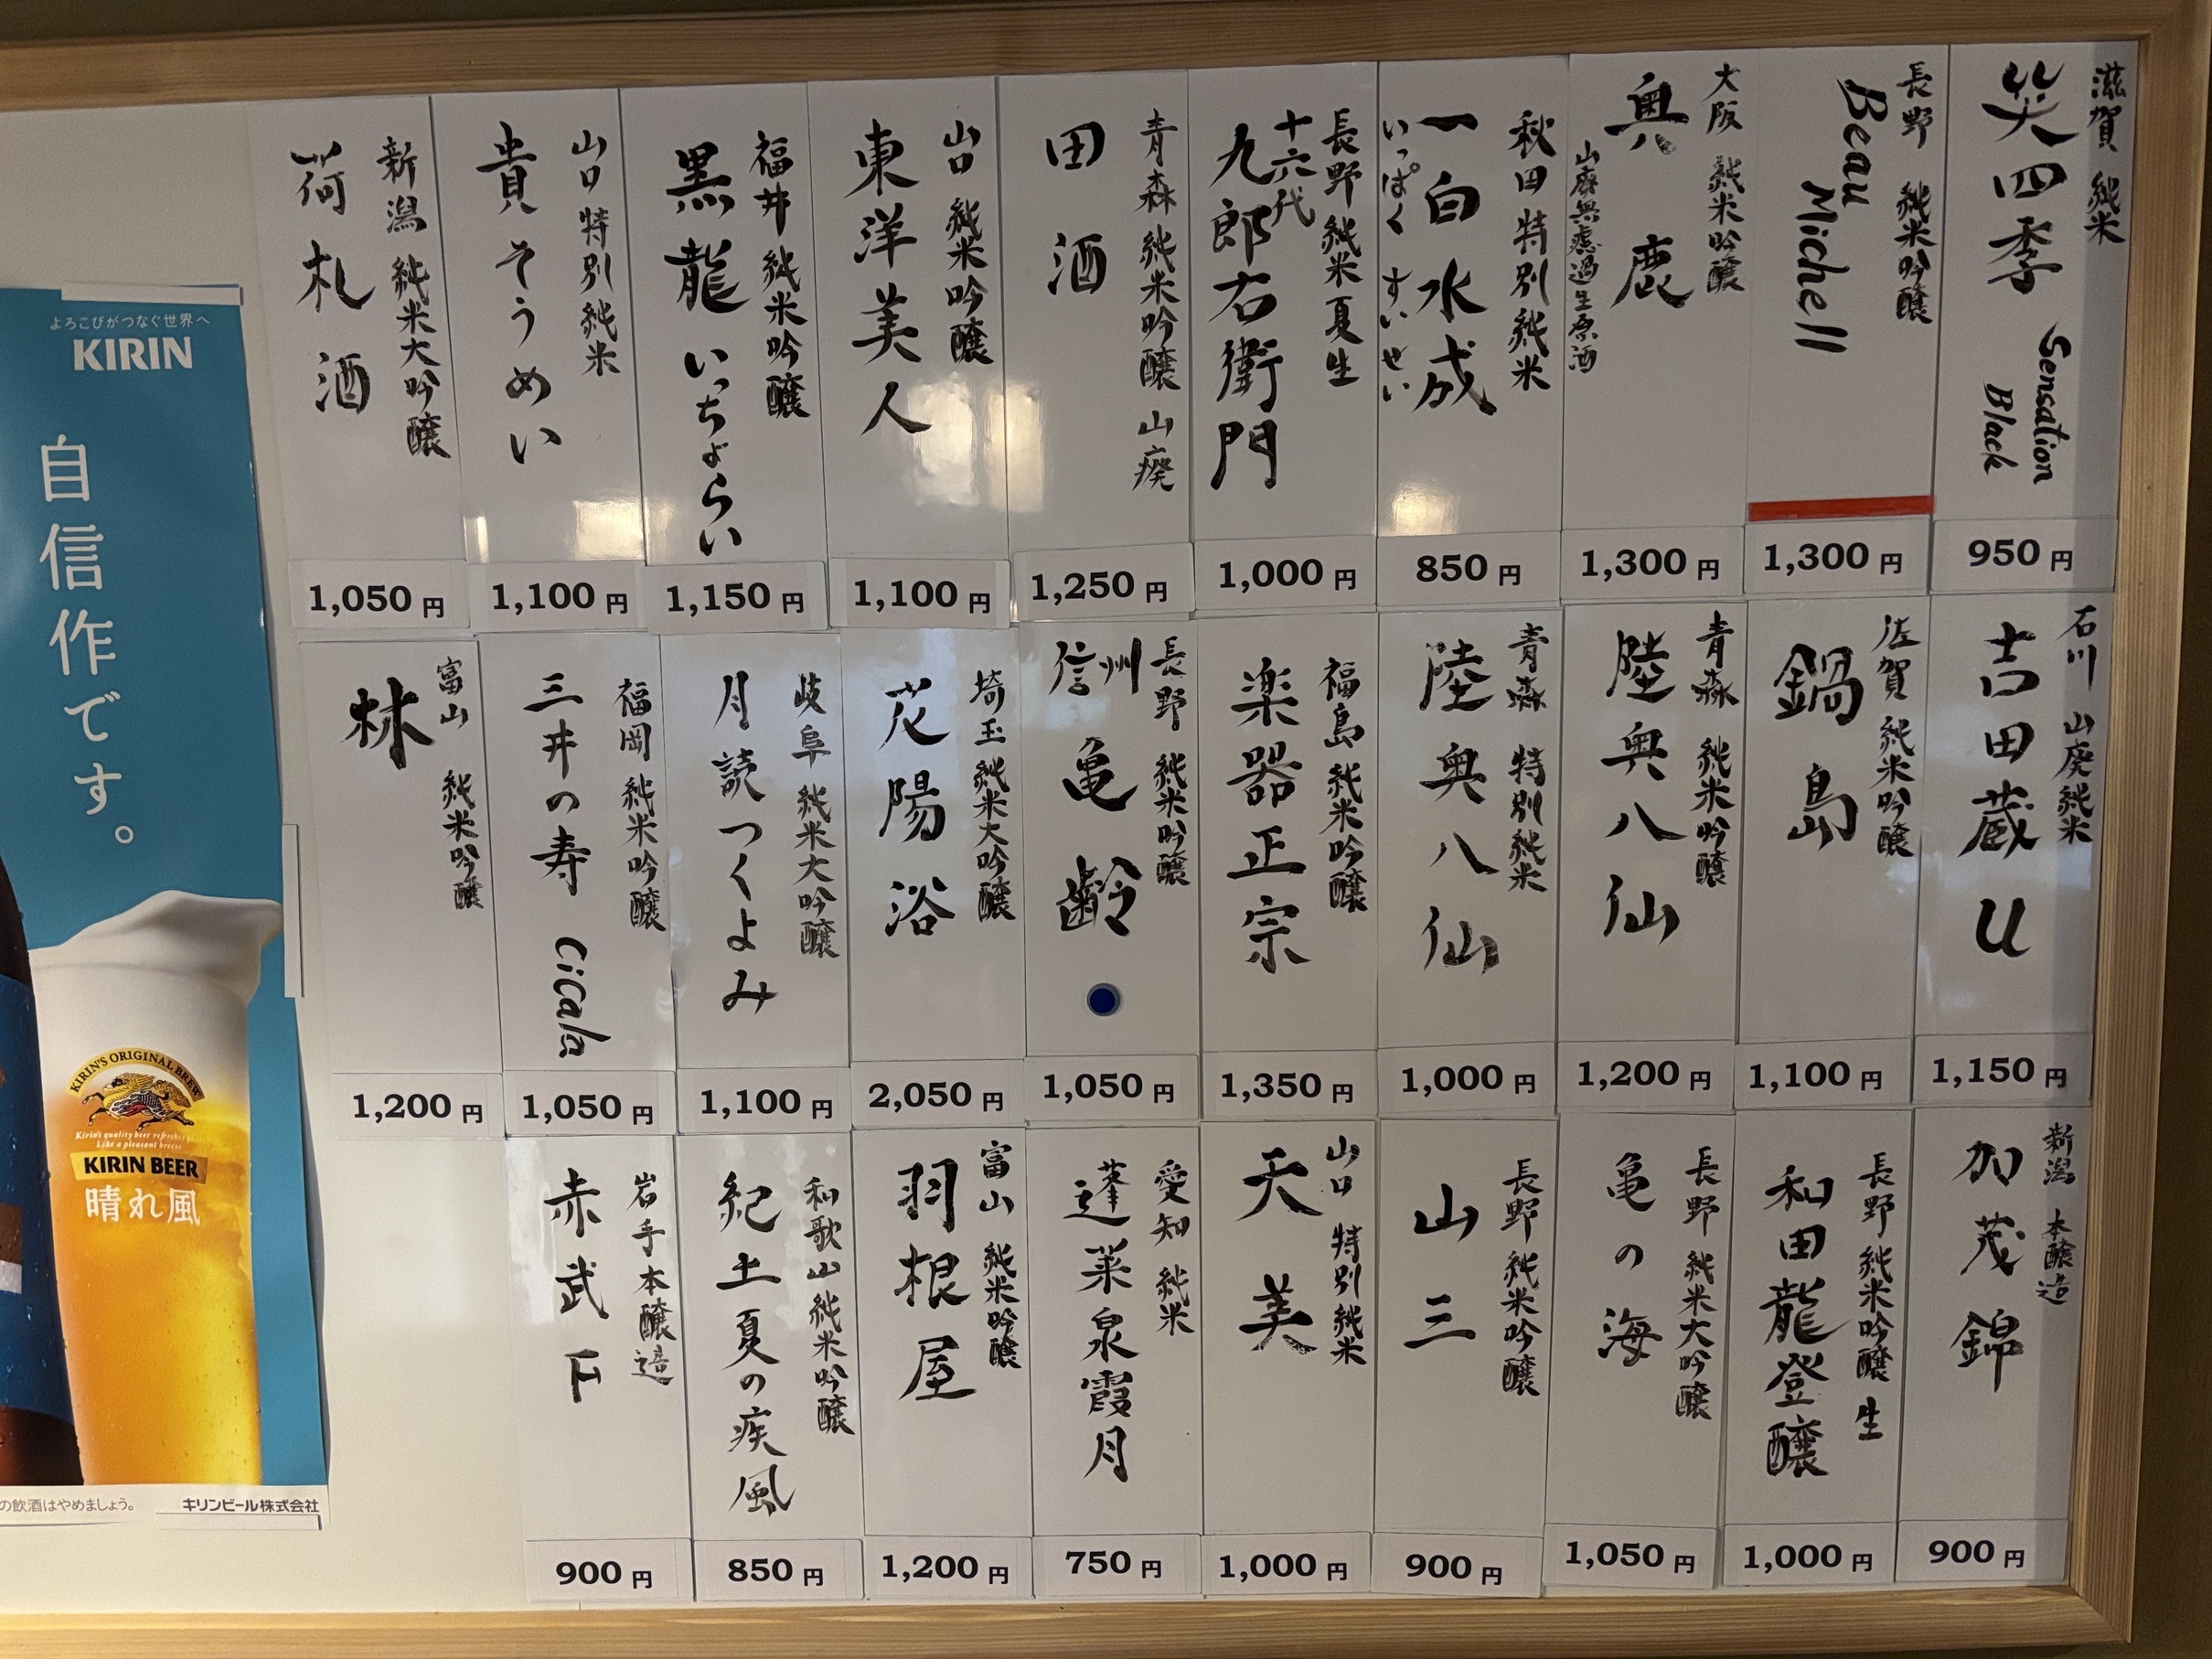 滋賀 純米
笑四季 Sensation
Black
950円
長野 純米吟醸
Beau
Michell
1,300円
大阪 純米吟醸
奥鹿
山廃無濾過生原酒
1,300円
秋田 特別純米
一白水成
いっぱく すいせい
850円
長野 純米夏生
十六代
九郎右衛門
1,000円
青森 純米吟醸 山廃
田酒
1,250円
山口 純米吟醸
東洋美人
1,100円
福井 純米吟醸
黒龍 いっちょらい
1,150円
山口 特別純米
貴 そうめい
1,100円
新潟 純米大吟醸
荷札酒
1,050円
石川 山廃純米
吉田蔵 U
1,150円
佐賀 純米吟醸
鍋島
1,100円
青森 純米吟醸
陸奥八仙
1,200円
青森 特別純米
陸奥八仙
1,000円
福島 純米吟醸
楽器正宗
1,350円
長野 純米吟醸
信州
亀齢
1,050円
埼玉 純米大吟醸
花陽浴
2,050円
岐阜 純米大吟醸
月読 つくよみ
1,100円
福岡 純米吟醸
三井の寿 Cicala
1,050円
富山 純米吟醸
林
1,200円
新潟 本醸造
加茂錦
900円
長野 純米吟醸 生
和田龍登醸
1,000円
長野 純米大吟醸
亀の海
1,050円
長野 純米吟醸
山三
900円
山口 特別純米
天美
1,000円
愛知 純米
蓬莱泉霞月
750円
富山 純米吟醸
羽根屋
1,200円
和歌山 純米吟醸
紀土 夏の疾風
850円
岩手 本醸造
赤武 F
900円
よろこびがつなぐ世界へ
KIRIN
自信作です。
KIRIN'S ORIGINAL BREW
Kirin's quality beer refreshes
Like a pleasant breeze
KIRIN BEER
晴れ風
の飲酒はやめましょう。
キリンビール株式会社